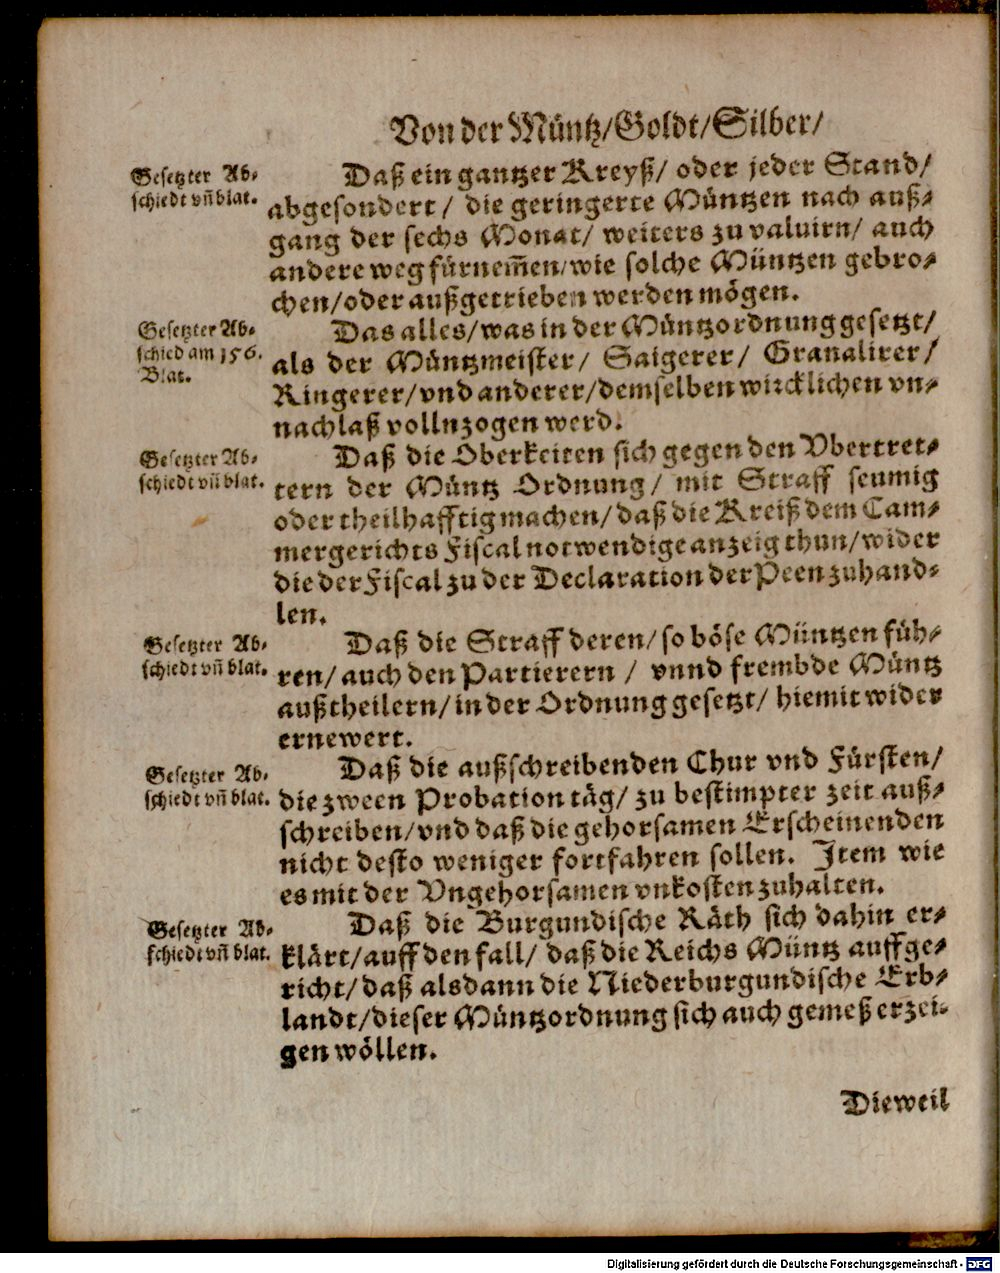 Von der Müntz/Goldt/Silber/
Gesetzter Ab-
schiedt vñ blat.
Daß ein gantzer Kreyß/ oder jeder Stand/
abgesondert/ die geringerte Müntzen nach auß-
gang der sechs Monat/ weiters zu valuirn/ auch
andere weg fürnem̃en/wie solche Müntzen gebro-
chen/oder außgetrieben werden mögen.
Gesetzter Ab-
schied am 156.
Blat.
Das alles/was in der Müntzordnung gesetzt/
als der Müntzmeister/ Saigerer/ Granalirer/
Ringerer/vnd anderer/demselben wircklichen vn-
nachlaß vollnzogen werd.
Gesetzter Ab-
schiedt vñ blat.
Daß die Oberkeiten sich gegen den Vbertret-
tern der Müntz Ordnung/ mit Straff seumig
oder theilhafftig machen/daß die Kreiß dem Cam-
mergerichts Fiscal notwendige anzeig thun/wider
die der Fiscal zu der Declaration der Peen zuhand-
len.
Gesetzter Ab-
schiedt vñ blat.
Daß die Straff deren/so böse Müntzen füh-
ren/auch den Partierern / vnnd frembde Müntz
außtheilern/in der Ordnung gesetzt/ hiemit wider
ernewert.
Gesetzter Ab-
schiedt vñ blat.
Daß die außschreibenden Chur vnd Fürsten/
die zween Probation täg/ zu bestimpter zeit auß-
schreiben/vnd daß die gehorsamen Erscheinenden
nicht desto weniger fortfahren sollen. Item wie
es mit der Vngehorsamen vnkosten zuhalten.
Gesetzter Ab-
schiedt vñ blat.
Daß die Burgundische Räth sich dahin er-
klärt/auff den fall/ daß die Reichs Müntz auffge-
richt/daß alsdann die Niederburgundische Erb-
landt/dieser Müntzordnung sich auch gemeß erzei-
gen wöllen.
Dieweil
Digitalisierung gefördert durch die Deutsche Forschungsgemeinschaft - DFG